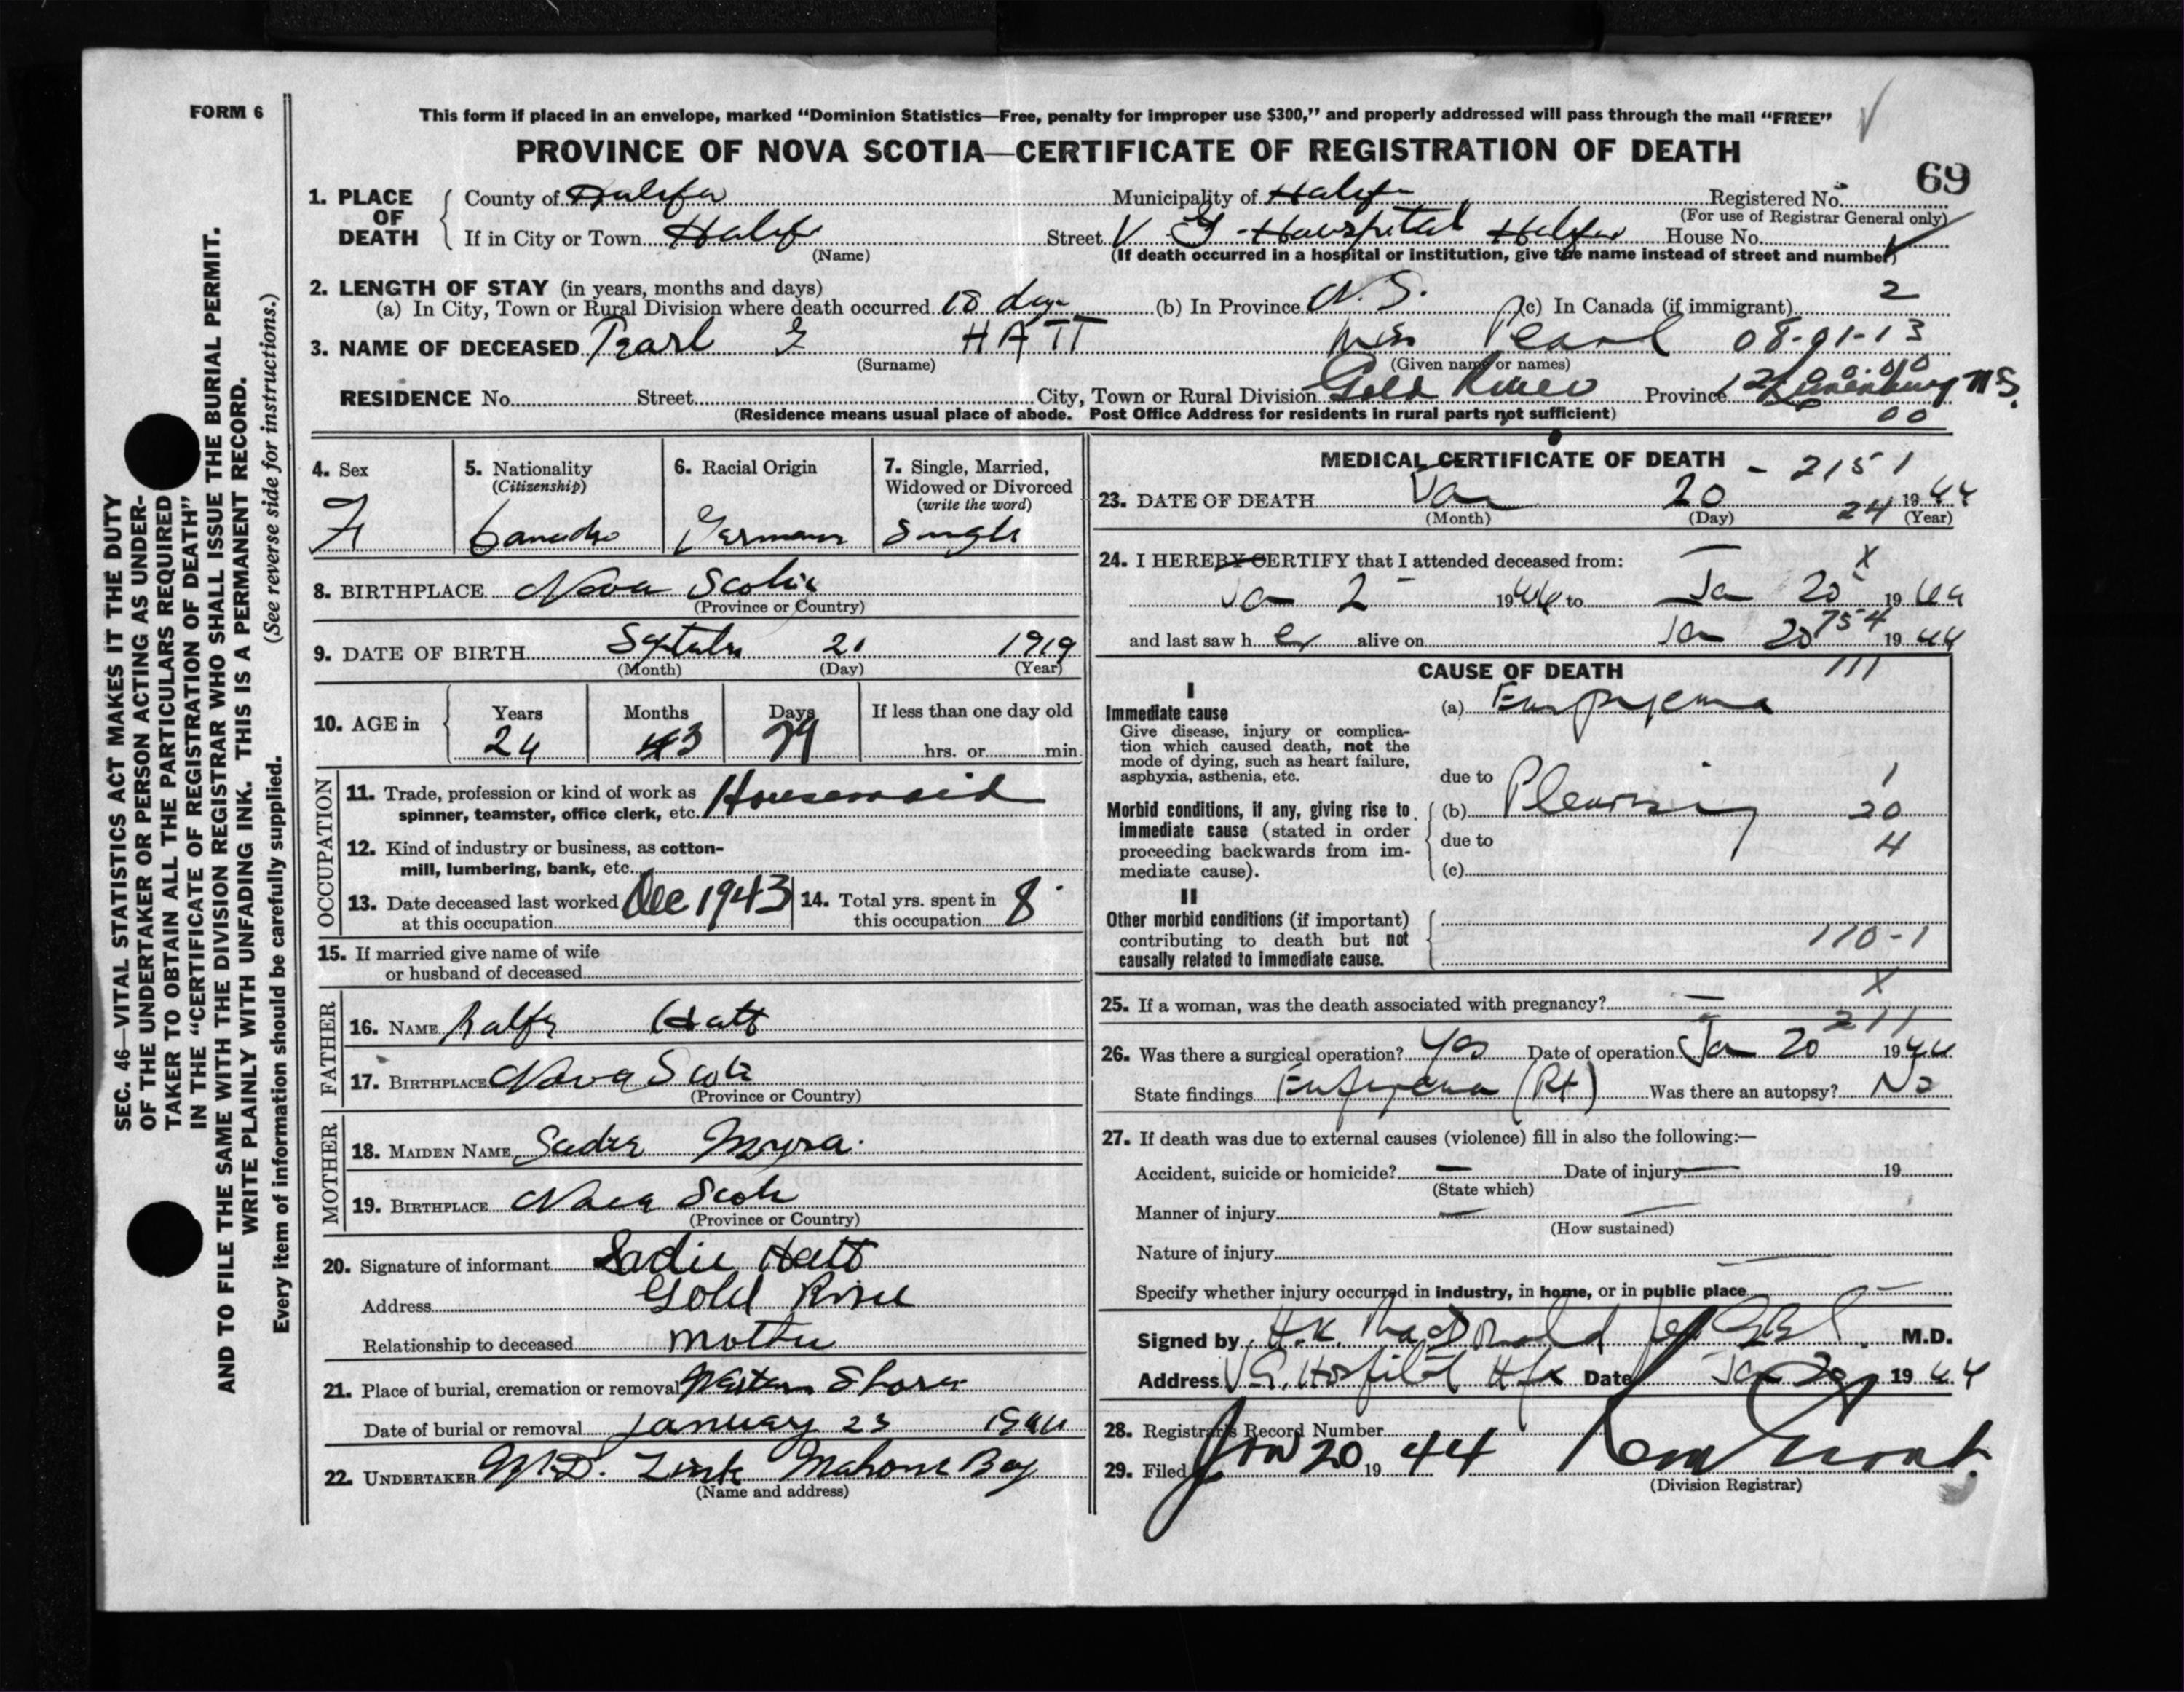 FORM 6
This form if placed in an envelope, marked “Dominion Statistics—Free, penalty for improper use $300,” and properly addressed will pass through the mail “FREE”
PROVINCE OF NOVA SCOTIA—CERTIFICATE OF REGISTRATION OF DEATH
69
1. PLACE OF DEATH
County of Halifax Municipality of Halifax Registered No.
(For use of Registrar General only)
If in City or Town Halifax Street V G Hospital Halifax House No.
(Name) (If death occurred in a hospital or institution, give the name instead of street and number)
2. LENGTH OF STAY (in years, months and days)
(a) In City, Town or Rural Division where death occurred 18 days (b) In Province N.S. (c) In Canada (if immigrant) 2
3. NAME OF DECEASED Pearl G HATT Miss Pearl 08-01-13
(Surname) (Given name or names)
RESIDENCE No. Street City, Town or Rural Division Gold River Province Lunenburg N.S.
00
(Residence means usual place of abode. Post Office Address for residents in rural parts not sufficient)
4. Sex F
5. Nationality (Citizenship) Canadian
6. Racial Origin German
7. Single, Married, Widowed or Divorced (write the word) Single
8. BIRTHPLACE Nova Scotia
(Province or Country)
9. DATE OF BIRTH 21 1919
(Month) (Day) (Year)
10. AGE in Years 24 Months 3 Days 29 If less than one day old hrs. or min.
OCCUPATION
11. Trade, profession or kind of work as spinner, teamster, office clerk, etc. Housemaid
12. Kind of industry or business, as cotton-mill, lumbering, bank, etc.
13. Date deceased last worked at this occupation Dec 1943
14. Total yrs. spent in this occupation 8
15. If married give name of wife or husband of deceased
FATHER
16. NAME Hatt
17. BIRTHPLACE Nova Scotia
(Province or Country)
MOTHER
18. MAIDEN NAME Sadie Myra
19. BIRTHPLACE Nova Scotia
(Province or Country)
20. Signature of informant Sadie Hatt
Address Gold River
Relationship to deceased mother
21. Place of burial, cremation or removal Western Shore
Date of burial or removal January 23 1944
22. UNDERTAKER Zink Mahone Bay
(Name and address)
MEDICAL CERTIFICATE OF DEATH - 2151
23. DATE OF DEATH Jan 20 1944
24
(Month) (Day) (Year)
24. I HEREBY CERTIFY that I attended deceased from:
Jan 2 1944 to Jan 20 1944
754
and last saw her alive on Jan 20 1944
CAUSE OF DEATH 111
I
Immediate cause
Give disease, injury or complication which caused death, not the mode of dying, such as heart failure, asphyxia, asthenia, etc.
(a) Empyema
due to
Morbid conditions, if any, giving rise to immediate cause (stated in order proceeding backwards from immediate cause).
(b) Pleurisy
1
20
4
due to
(c)
II
Other morbid conditions (if important) contributing to death but not causally related to immediate cause.
110-1
25. If a woman, was the death associated with pregnancy? —
X
211
26. Was there a surgical operation? Yes Date of operation Jan 20 1944
State findings Empyema (Rt) Was there an autopsy? No
27. If death was due to external causes (violence) fill in also the following:—
Accident, suicide or homicide? — Date of injury — 19
(State which)
Manner of injury —
(How sustained)
Nature of injury
Specify whether injury occurred in industry, in home, or in public place
Signed by H.K. MacDonald M.D.
Address V.G. Hospital Hfx Date Jan 20 1944
28. Registrar's Record Number
29. Filed Jan 20 19 44
(Division Registrar)
SEC. 46—VITAL STATISTICS ACT MAKES IT THE DUTY
OF THE UNDERTAKER OR PERSON ACTING AS UNDER-
TAKER TO OBTAIN ALL THE PARTICULARS REQUIRED
IN THE “CERTIFICATE OF REGISTRATION OF DEATH”
AND TO FILE THE SAME WITH THE DIVISION REGISTRAR WHO SHALL ISSUE THE BURIAL PERMIT.
WRITE PLAINLY WITH UNFADING INK. THIS IS A PERMANENT RECORD.
Every item of information should be carefully supplied. (See reverse side for instructions.)